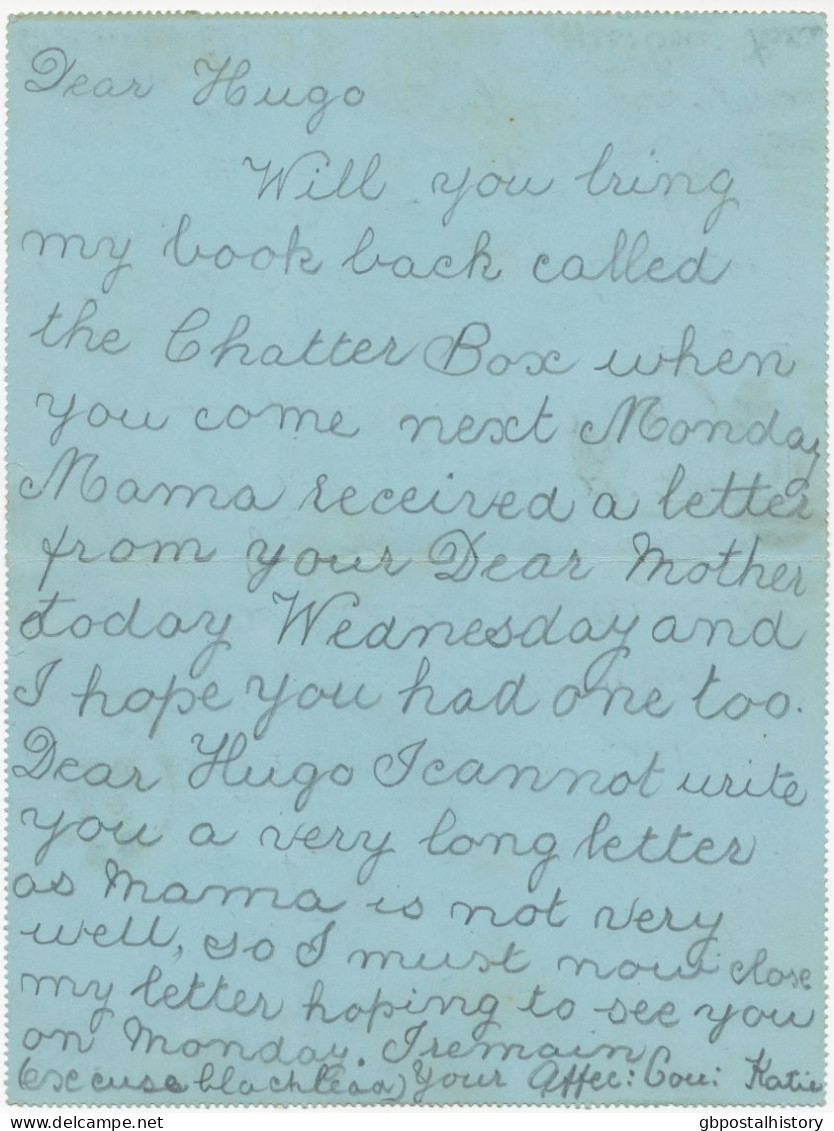 Dear Hugo
Will you bring
my book back called
the Chatter Box when
you come next Monday
Mama received a letter
from your Dear Mother
today Wednesday and
I hope you had one too.
Dear Hugo I cannot write
you a very long letter
as Mama is not very
well, so I must now close
my letter hoping to see you
on Monday. I remain
(excuse blacklead) Your Affec: Cou: Katie
gbpostalhistory